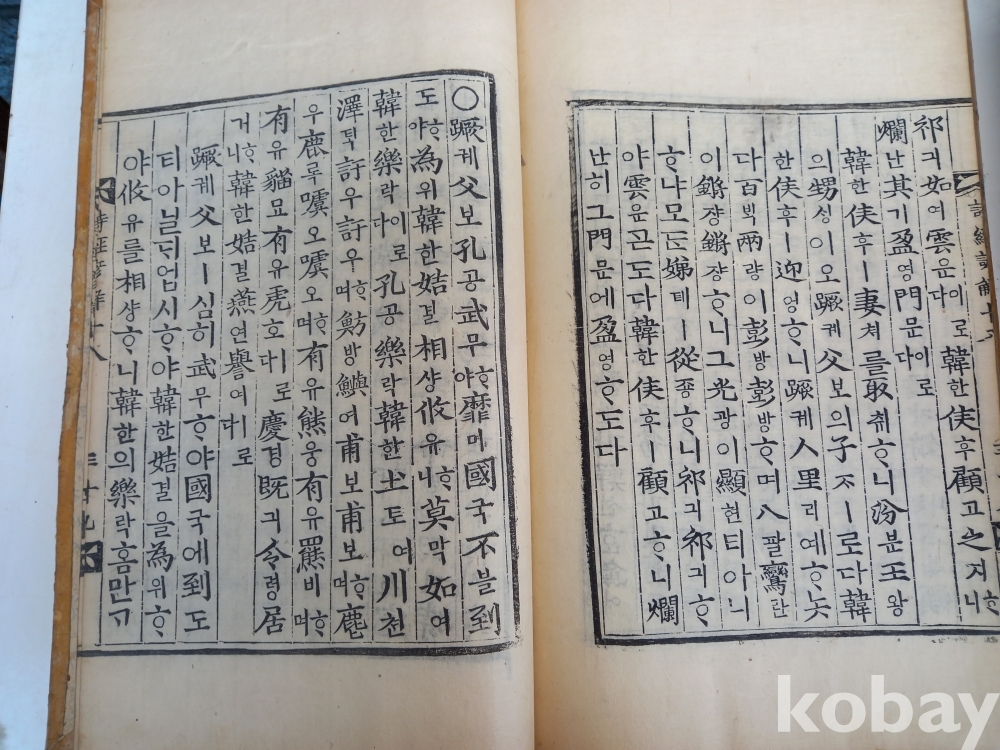 祁긔如여雲운이로다韓한侯후顧고之지ᄒᆞ니
爛난其기盈영門문이로다
韓한侯후ㅣ妻쳐를取ᄎᆔᄒᆞ니汾분王왕
의甥셩이오蹶궤父보의子ᄌᆞㅣ로다韓
한侯후ㅣ迎영ᄒᆞ니蹶궤人里리예ᄒᆞ놋
다百ᄇᆡᆨ兩량이彭방彭방ᄒᆞ며八팔鸞란
이鏘쟝鏘쟝ᄒᆞ니그光광이顯현티아니
ᄒᆞ냐모ᄃᆞᆫ娣뎨ㅣ從죵ᄒᆞ니祁긔祁긔ᄒᆞ
야雲운ᄀᆞᆮ도다韓한侯후ㅣ顧고ᄒᆞ니爛
난히그門문에盈영ᄒᆞ도다
○蹶궤父보孔공武무ᄒᆞ야靡미國국不블到
도ᄒᆞ야為위韓한姞결相샹攸유ᄒᆞ니莫막如여
韓한樂락이로다孔공樂락韓한土토여川쳔
澤틱訏우訏우ᄒᆞ며魴방鱮여甫보甫보ᄒᆞ며麀
우鹿록噳오噳오ᄒᆞ며有유熊웅有유羆비ᄒᆞ며
有유貓묘有유虎호ㅣ로다慶경既긔令령居
거ᄒᆞ니韓한姞결燕연譽여ㅣ로다
蹶궤父보ㅣ심히武무ᄒᆞ야國국에到도
티아닐ᄃᆡ업시ᄒᆞ야韓한姞결을為위ᄒᆞ
야攸유를相샹ᄒᆞ니韓한의樂락흠만ᄀᆞ
詩經諺解十八 三十九
kobay